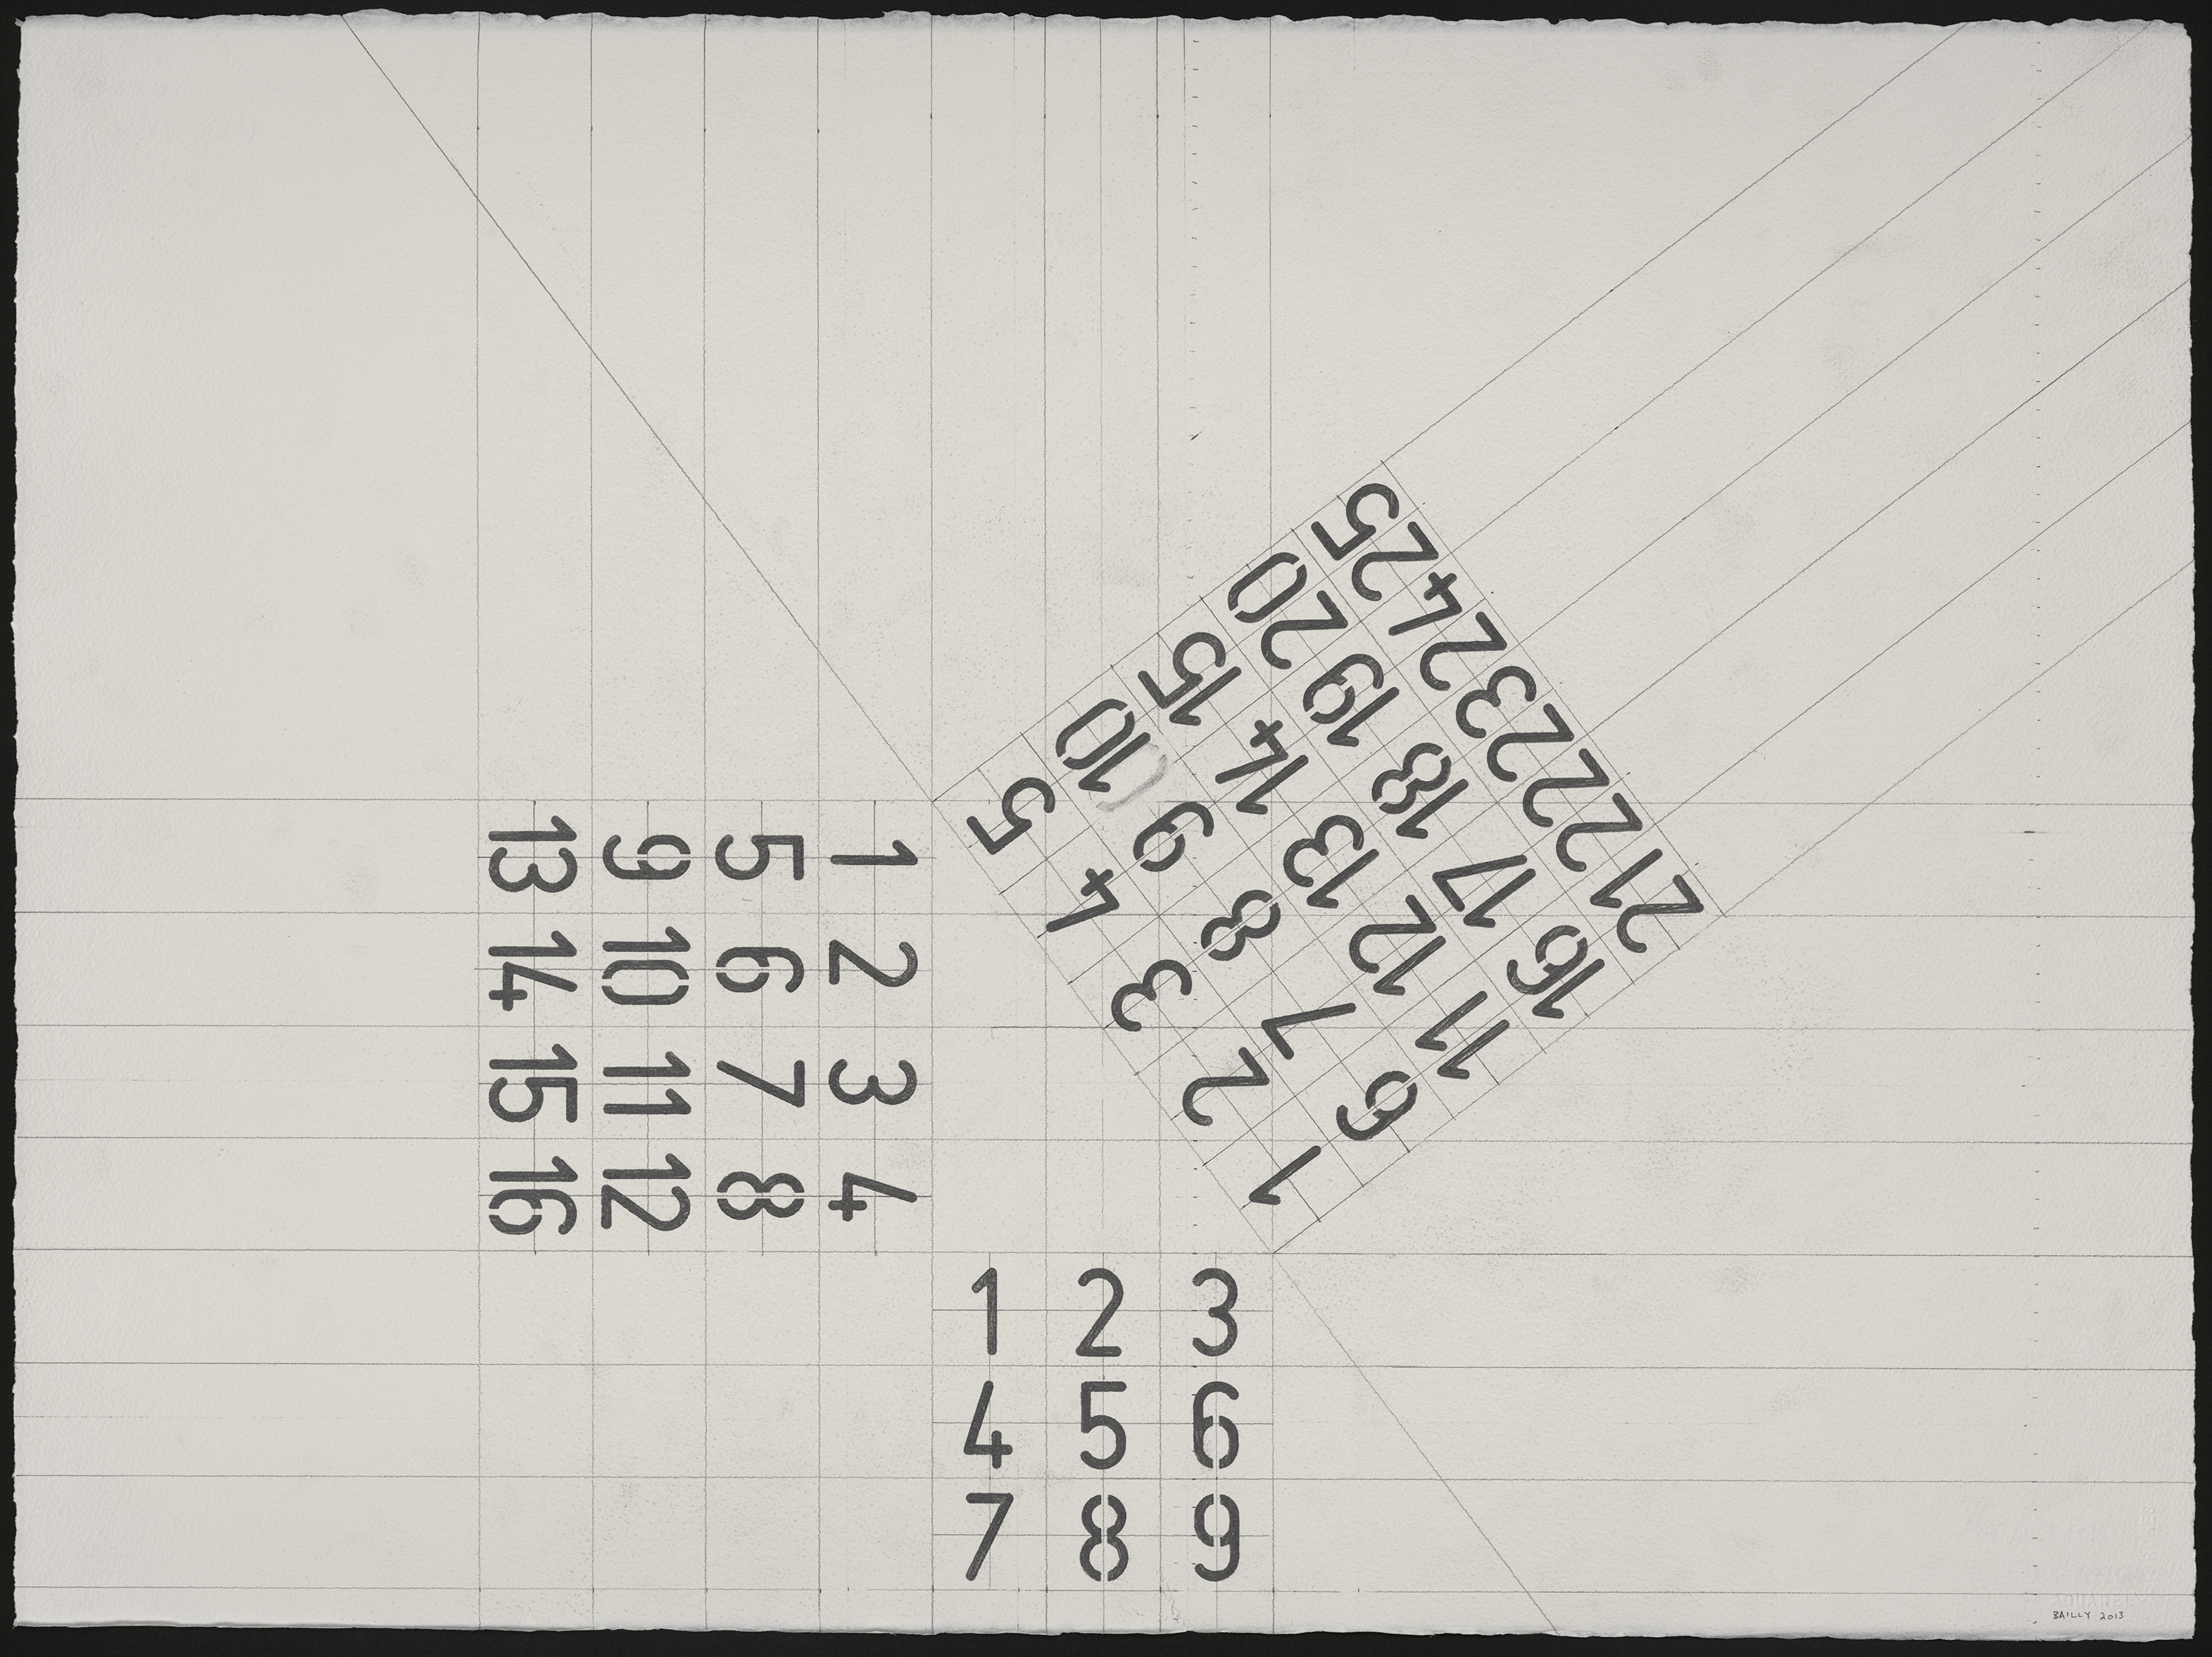 1 2 3 4
5 6 7 8
9 10 11 12
13 14 15 16
1 2 3 4 5
6 7 8 9 10
11 12 13 14 15
16 17 18 19 20
21 22 23 24 25
1 2 3
4 5 6
7 8 9
BAILLY 2013